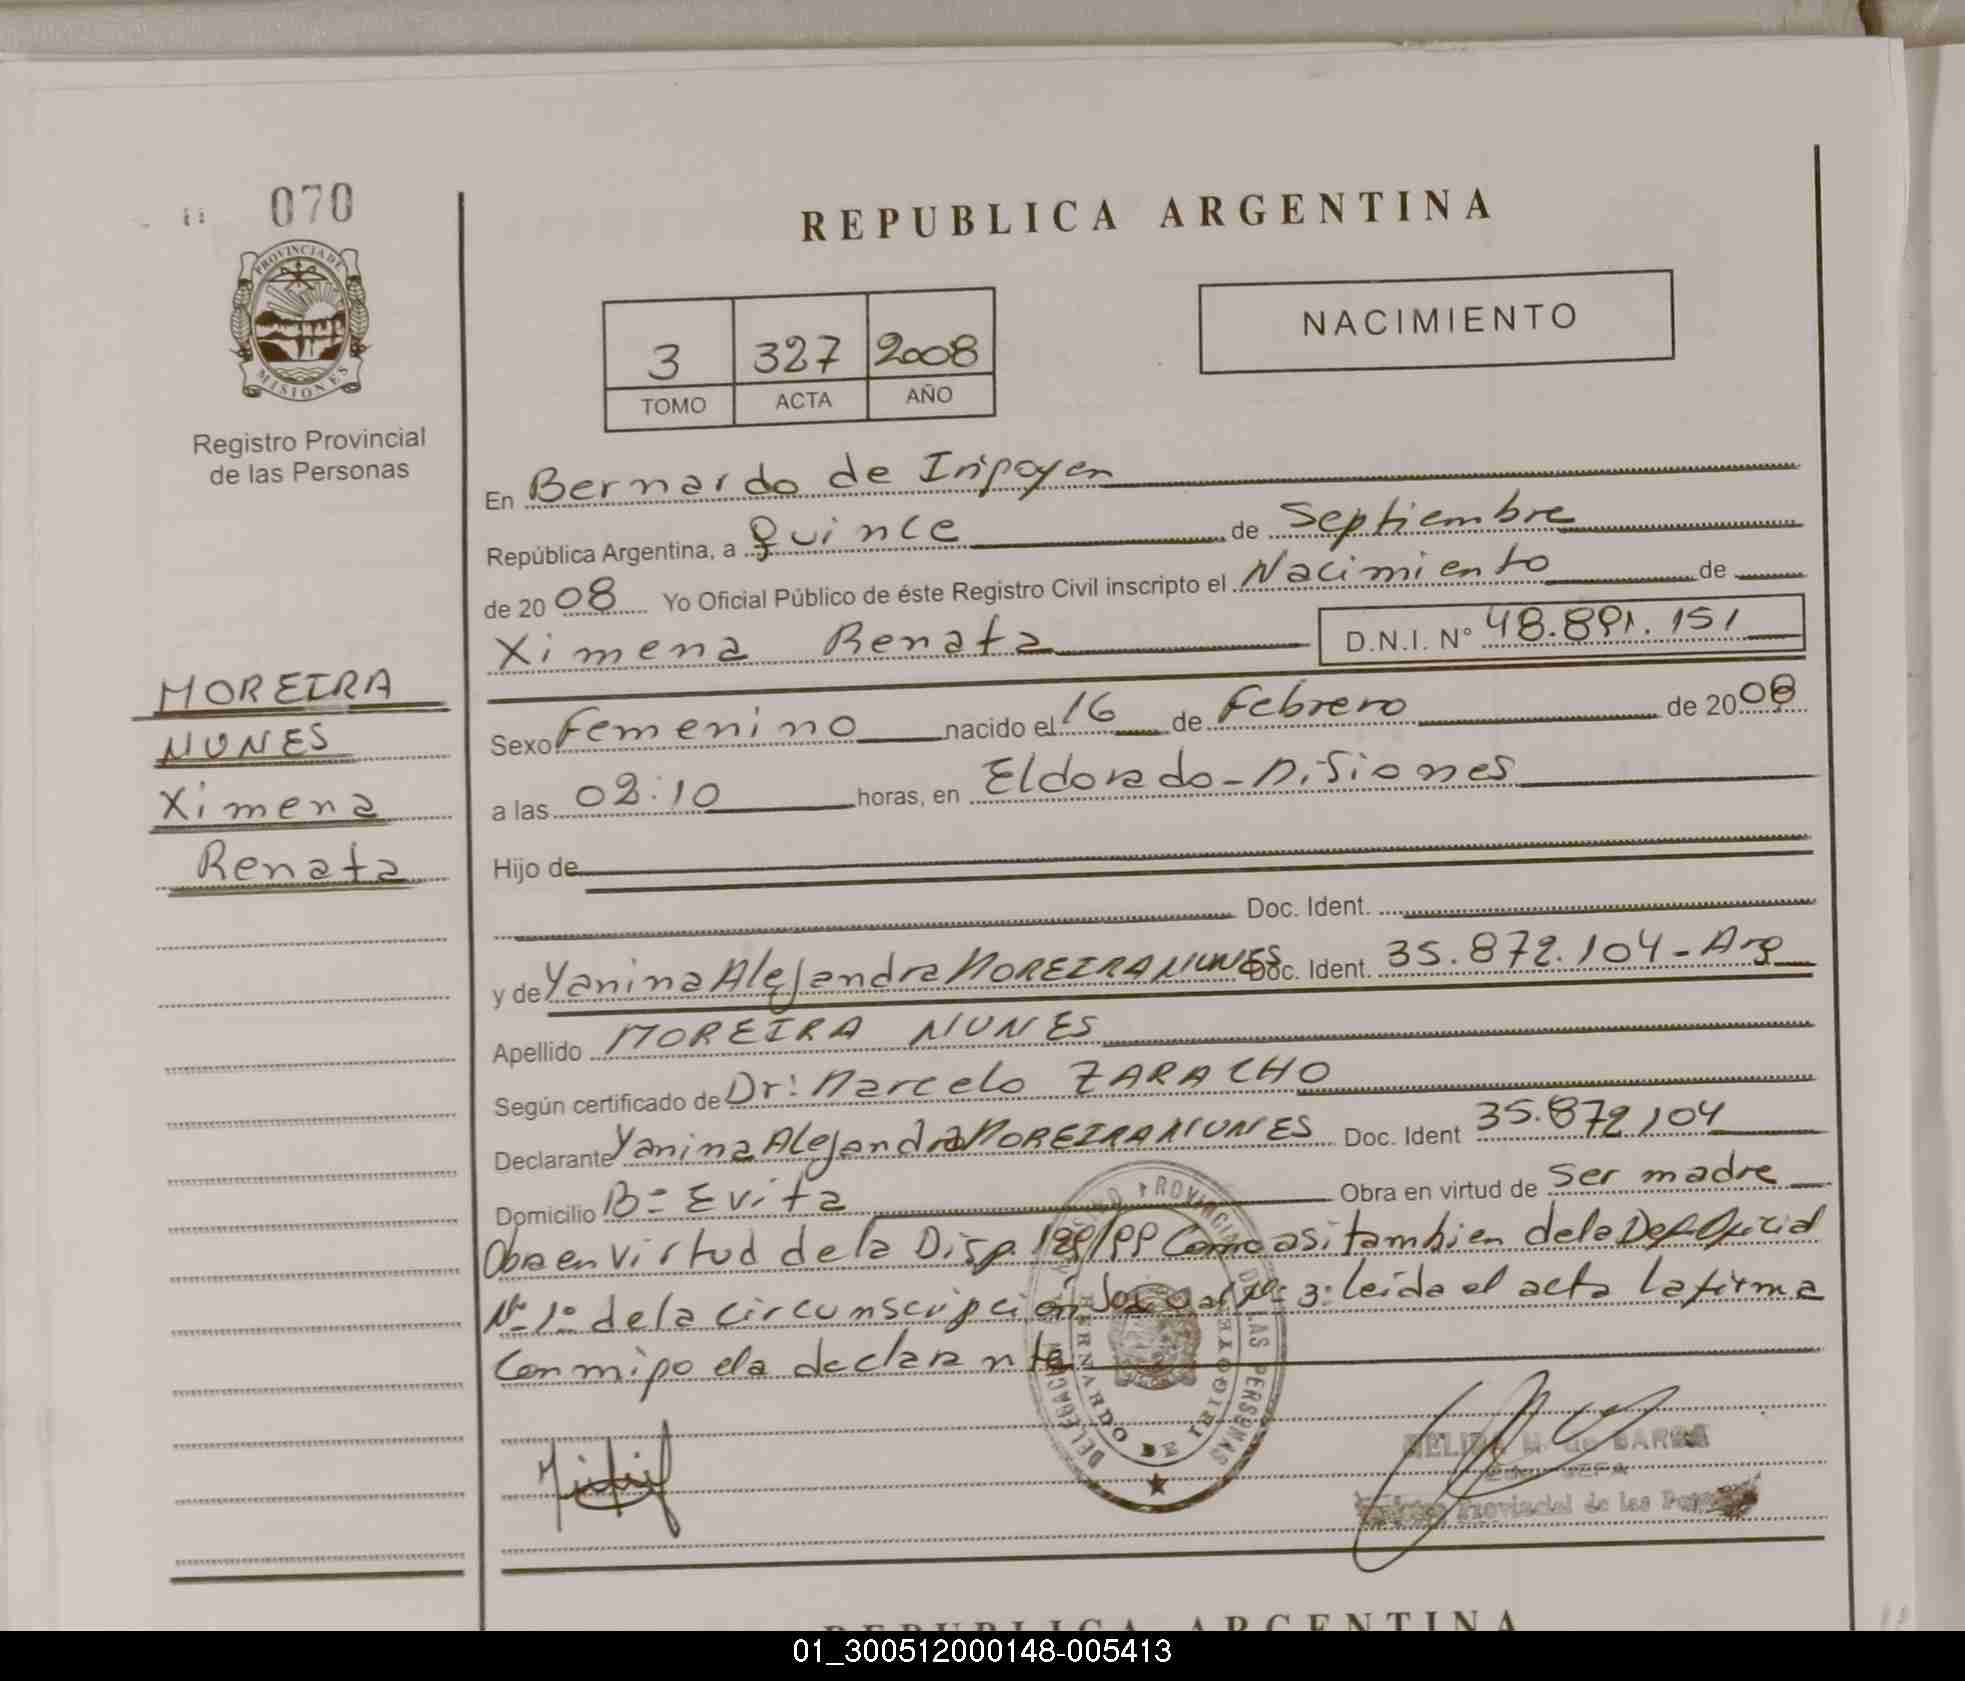 070
PROVINCIA DE
MISIONES
Registro Provincial
de las Personas
MOREIRA
NUNES
Ximena
Renata
REPUBLICA ARGENTINA
NACIMIENTO
3 327 2008
TOMO ACTA AÑO
En Bernardo de Irigoyen
República Argentina, a Quince de Septiembre
de 2008 Yo Oficial Público de éste Registro Civil inscripto el Nacimiento de
Ximena Renata D.N.I. N° 48.891.151
Sexo Femenino nacido el 16 de Febrero de 2008
a las 02:10 horas, en Eldorado - Misiones
Hijo de
Doc. Ident.
y de Yanina Alejandra MOREIRA NUNES Doc. Ident. 35.872.104 - Arg
Apellido MOREIRA NUNES
Según certificado de Dr: Marcelo ZARACHO
Declarante Yanina Alejandra MOREIRA NUNES Doc. Ident 35.872,104
Domicilio B= Evita Obra en virtud de Ser madre
Obra en virtud de la Disp. como asi tambien de la Def Oficial
N° 1° de la circunscripción N° 3: leida el acta la firma
Conmigo la declarante
DELEGACION
PROVINCIAL DE LAS PERSONAS
BERNARDO DE IRIGOYEN
Provincial de las
REPUBLICA ARGENTINA
01_300512000148-005413